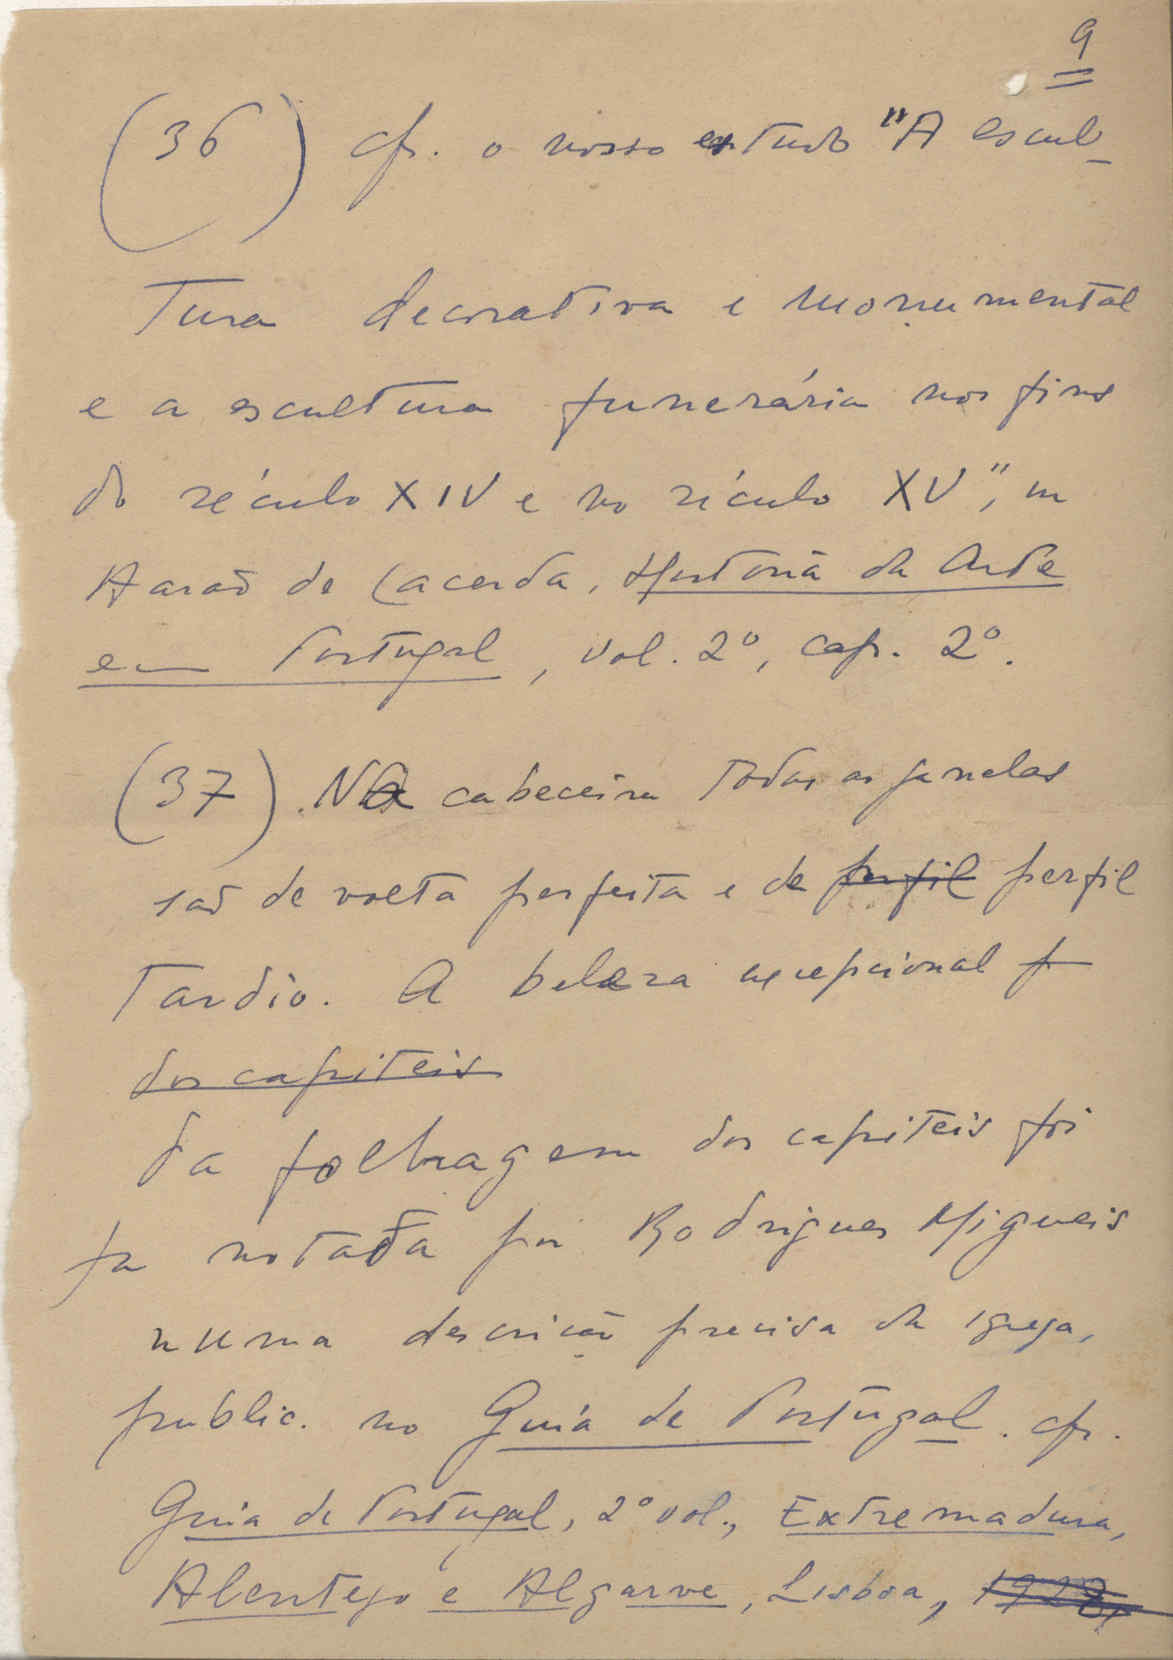 9
(36) cfr. o nosso estudo "A escul-
tura decorativa e monumental
e a escultura funerária nos fins
do século XIV e no século XV", in
Aarão de Lacerda, História da Arte
em Portugal, vol. 2º, cap. 2º.
(37). Na cabeceira todas as janelas
são de volta perfeita e de perfil perfil
tardio. A beleza excepcional
dos capiteis
da folhagem dos capiteis foi
ja notada por Rodrigues Migueis
numa descrição precisa da igreja,
public. no Guia de Portugal. cfr.
Guia de Portugal, 2º vol., Extremadura,
Alentejo e Algarve, Lisboa,